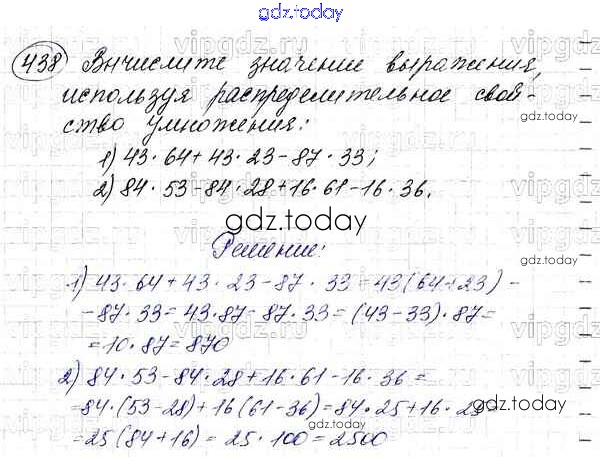 gdz.today
438 Вычислите значение выражения,
используя распределительное свой-
ство умножения:
gdz.today
1) 43 · 64 + 43 · 23 - 87 · 33;
2) 84 · 53 - 84 · 28 + 16 · 61 - 16 · 36.
gdz.today
Решение:
1) 43 · 64 + 43 · 23 - 87 · 33 = 43(64+23) -
- 87 · 33 = 43 · 87 - 87 · 33 = (43-33) · 87 =
= 10 · 87 = 870
2) 84 · 53 - 84 · 28 + 16 · 61 - 16 · 36 =
= 84 · (53-28) + 16(61-36) = 84 · 25 + 16 · 25 =
= 25(84+16) = 25 · 100 = 2500
gdz.today
gdz.today